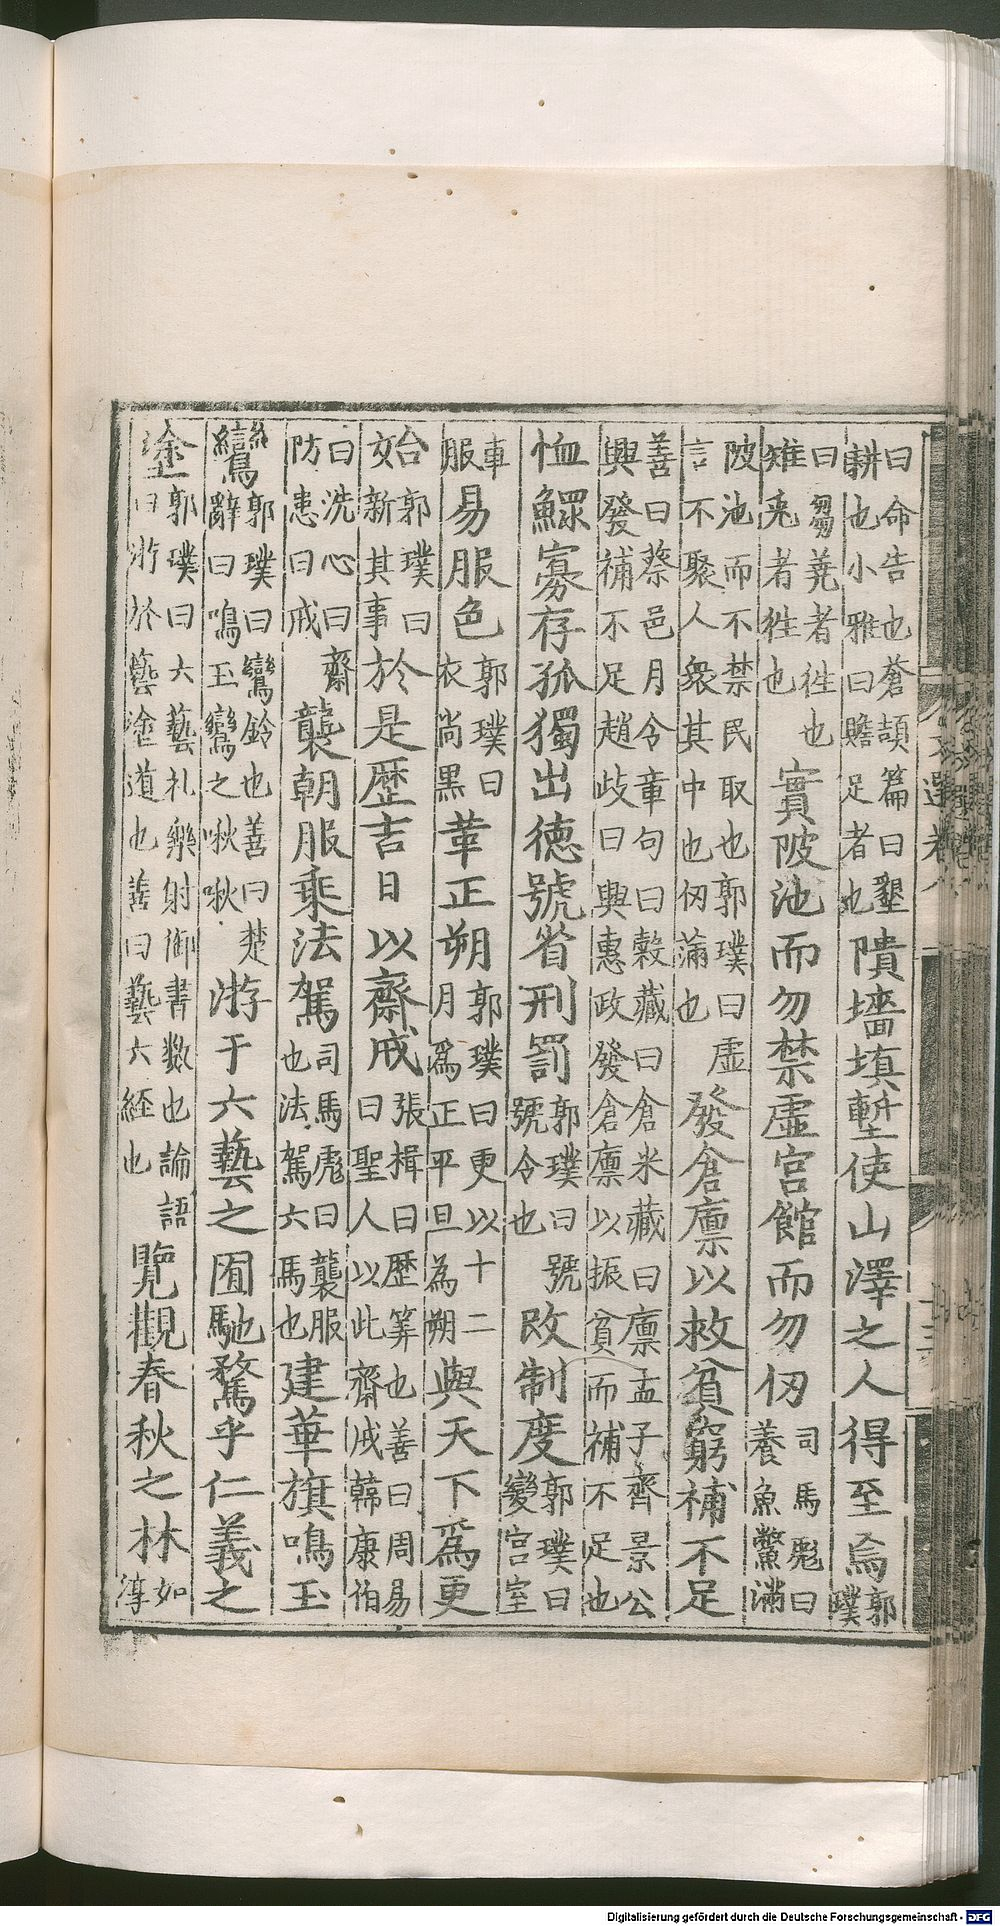 曰命告也蒼頡篇曰墾
耕也小雅曰贍足者也
隤墻填塹使山澤之人得至焉
郭
璞
曰芻蕘者徃也
雉兎者徃也
實陂池而勿禁虛宮館而勿仞
司馬彪曰
養魚鱉滿
陂池而不禁民取也郭璞曰虛
言不聚人衆其中也仞滿也
發倉廪以救貧窮補不足
善曰蔡邕月令章句曰榖藏曰倉米藏曰廪孟子齊景公
興發補不足趙歧曰興惠政發倉廪以振貧而補不足也
恤鰥寡存孤獨出德號省刑罰
郭璞曰號
號令也
改制度
郭璞曰
變宮室
車
服
易服色
郭璞曰
衣尚黑
革正朔
郭璞曰更以十二
月爲正平旦為朔
與天下爲更
始
郭璞曰
新其事
於是歴吉日以齋戒
張揖曰歴筭也善曰周易
曰聖人以此齋戒韓康伯
曰洗心曰齋
防患曰戒
襲朝服乘法駕
司馬彪曰襲服
也法駕六馬也
建華旗鳴玉
鸞
郭璞曰鸞鈴也善曰楚
辭曰鳴玉鸞之啾啾
游于六藝之囿馳騖乎仁義之
塗
郭璞曰六藝礼樂射御書数也論語
曰游於藝塗道也善曰藝六経也
覽觀春秋之林
如
淳
文選卷八
Digitalisierung gefördert durch die Deutsche Forschungsgemeinschaft - DFG